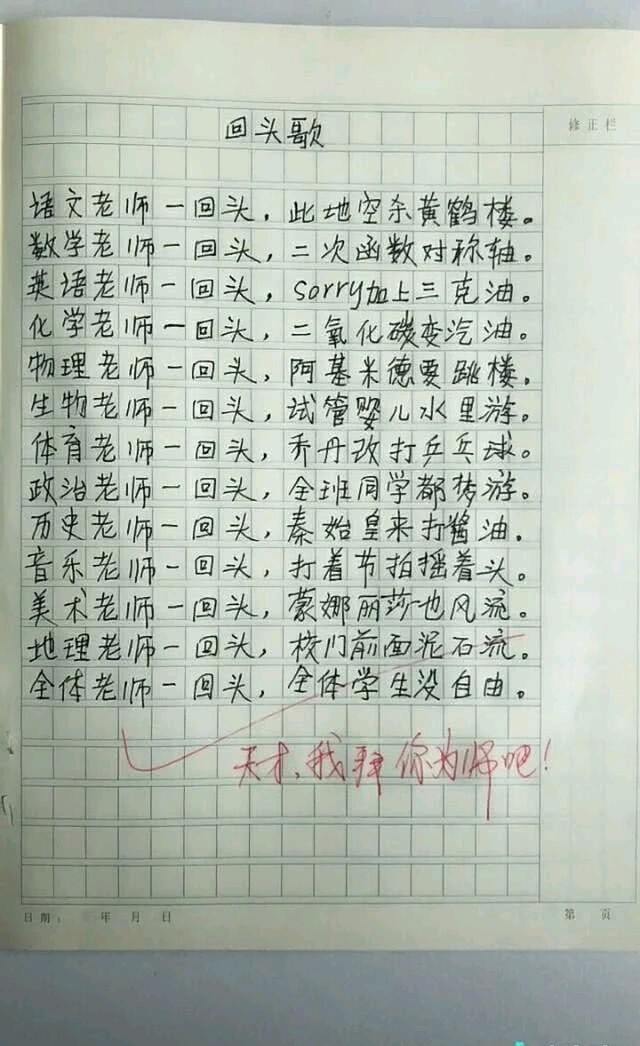 回头歌
修正栏
语文老师一回头，此地空余黄鹤楼。
数学老师一回头，二次函数对称轴。
英语老师一回头，sorry加上三克油。
化学老师一回头，二氧化碳变汽油。
物理老师一回头，阿基米德要跳楼。
生物老师一回头，试管婴儿水里游。
体育老师一回头，乔丹改打乒乓球。
政治老师一回头，全班同学都梦游。
历史老师一回头，秦始皇来打酱油。
音乐老师一回头，打着节拍摇着头。
美术老师一回头，蒙娜丽莎也风流。
地理老师一回头，校门前面泥石流。
全体老师一回头，全体学生没自由。
天才，我拜你为师吧！
日期： 年 月 日
第 页